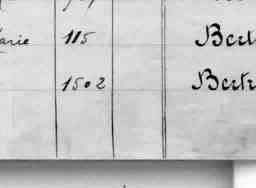 arie 115 Bert
1502 Bertr